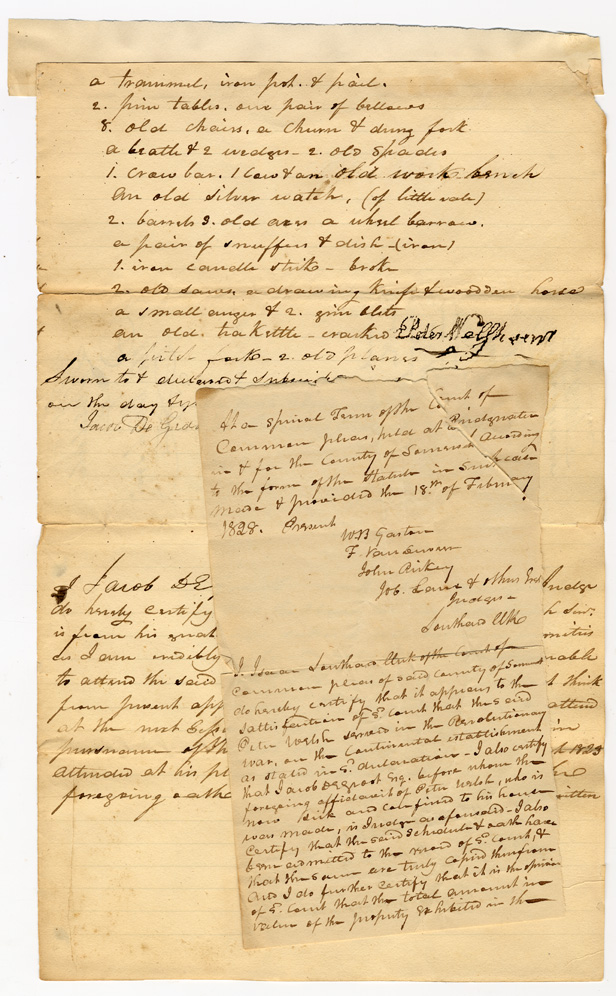 a trammel, iron pot. & pail.
2. pine tables. one pair of bellows
8. old chairs, a churn & dung fork
a beatle & 2 wedges - 2. old spades
1. crow bar. 1 saw & an old work bench
an old silver watch, (of little vale)
2. barrels 3. old axes a wheel barrow.
a pair of snuffers & dish - (iron)
1. iron candle stick - broke
2. old saws. a drawing knife & wooden horse
a small auger & 2. gimblets
an old. teakettle - cracked Peter Welsh
a fork - 2. old planes
Sworn to & declared &
on the day &
Jacob De
I Jacob DE
do hereby certify
is from his great
as I am credibly
to attend the said
from present app
at the next
pursuance of th
attended at his pl
foregoing oath
Judge
mitis
think
attend
in
1828
itten
At a special Term of the Court of
Common pleas, held at Bridgewater
in & for the County of Somerset According
to the form of the Statute in such case
made & provided the 18th of February
1828. Present
WB Gaston
F. Van
John
Job. Lane & others Esqs
Judges -
Southard Clk
I. Isaac Southard Clerk of the Court of
Common pleas of said County of Somerset
do hereby certify that it appears to the
satisfaction of sd. Court that the said
Peter Welsh served in the Revolutionary
war, on the Continental establishment
as stated in sd. declaration - I also certify
that Jacob DeGroot Esq. before whom the
foregoing affidavit of Peter Welsh, who is
now sick and confined to his house
was made, is Judge as aforesaid - I also
certify that the said Schedule & oath have
been admitted to the record of sd. Court, &
that the same are truly copied therefrom
And I do further certify that it is the opinion
of sd. Court that the total amount in
value of the property exhibited in the